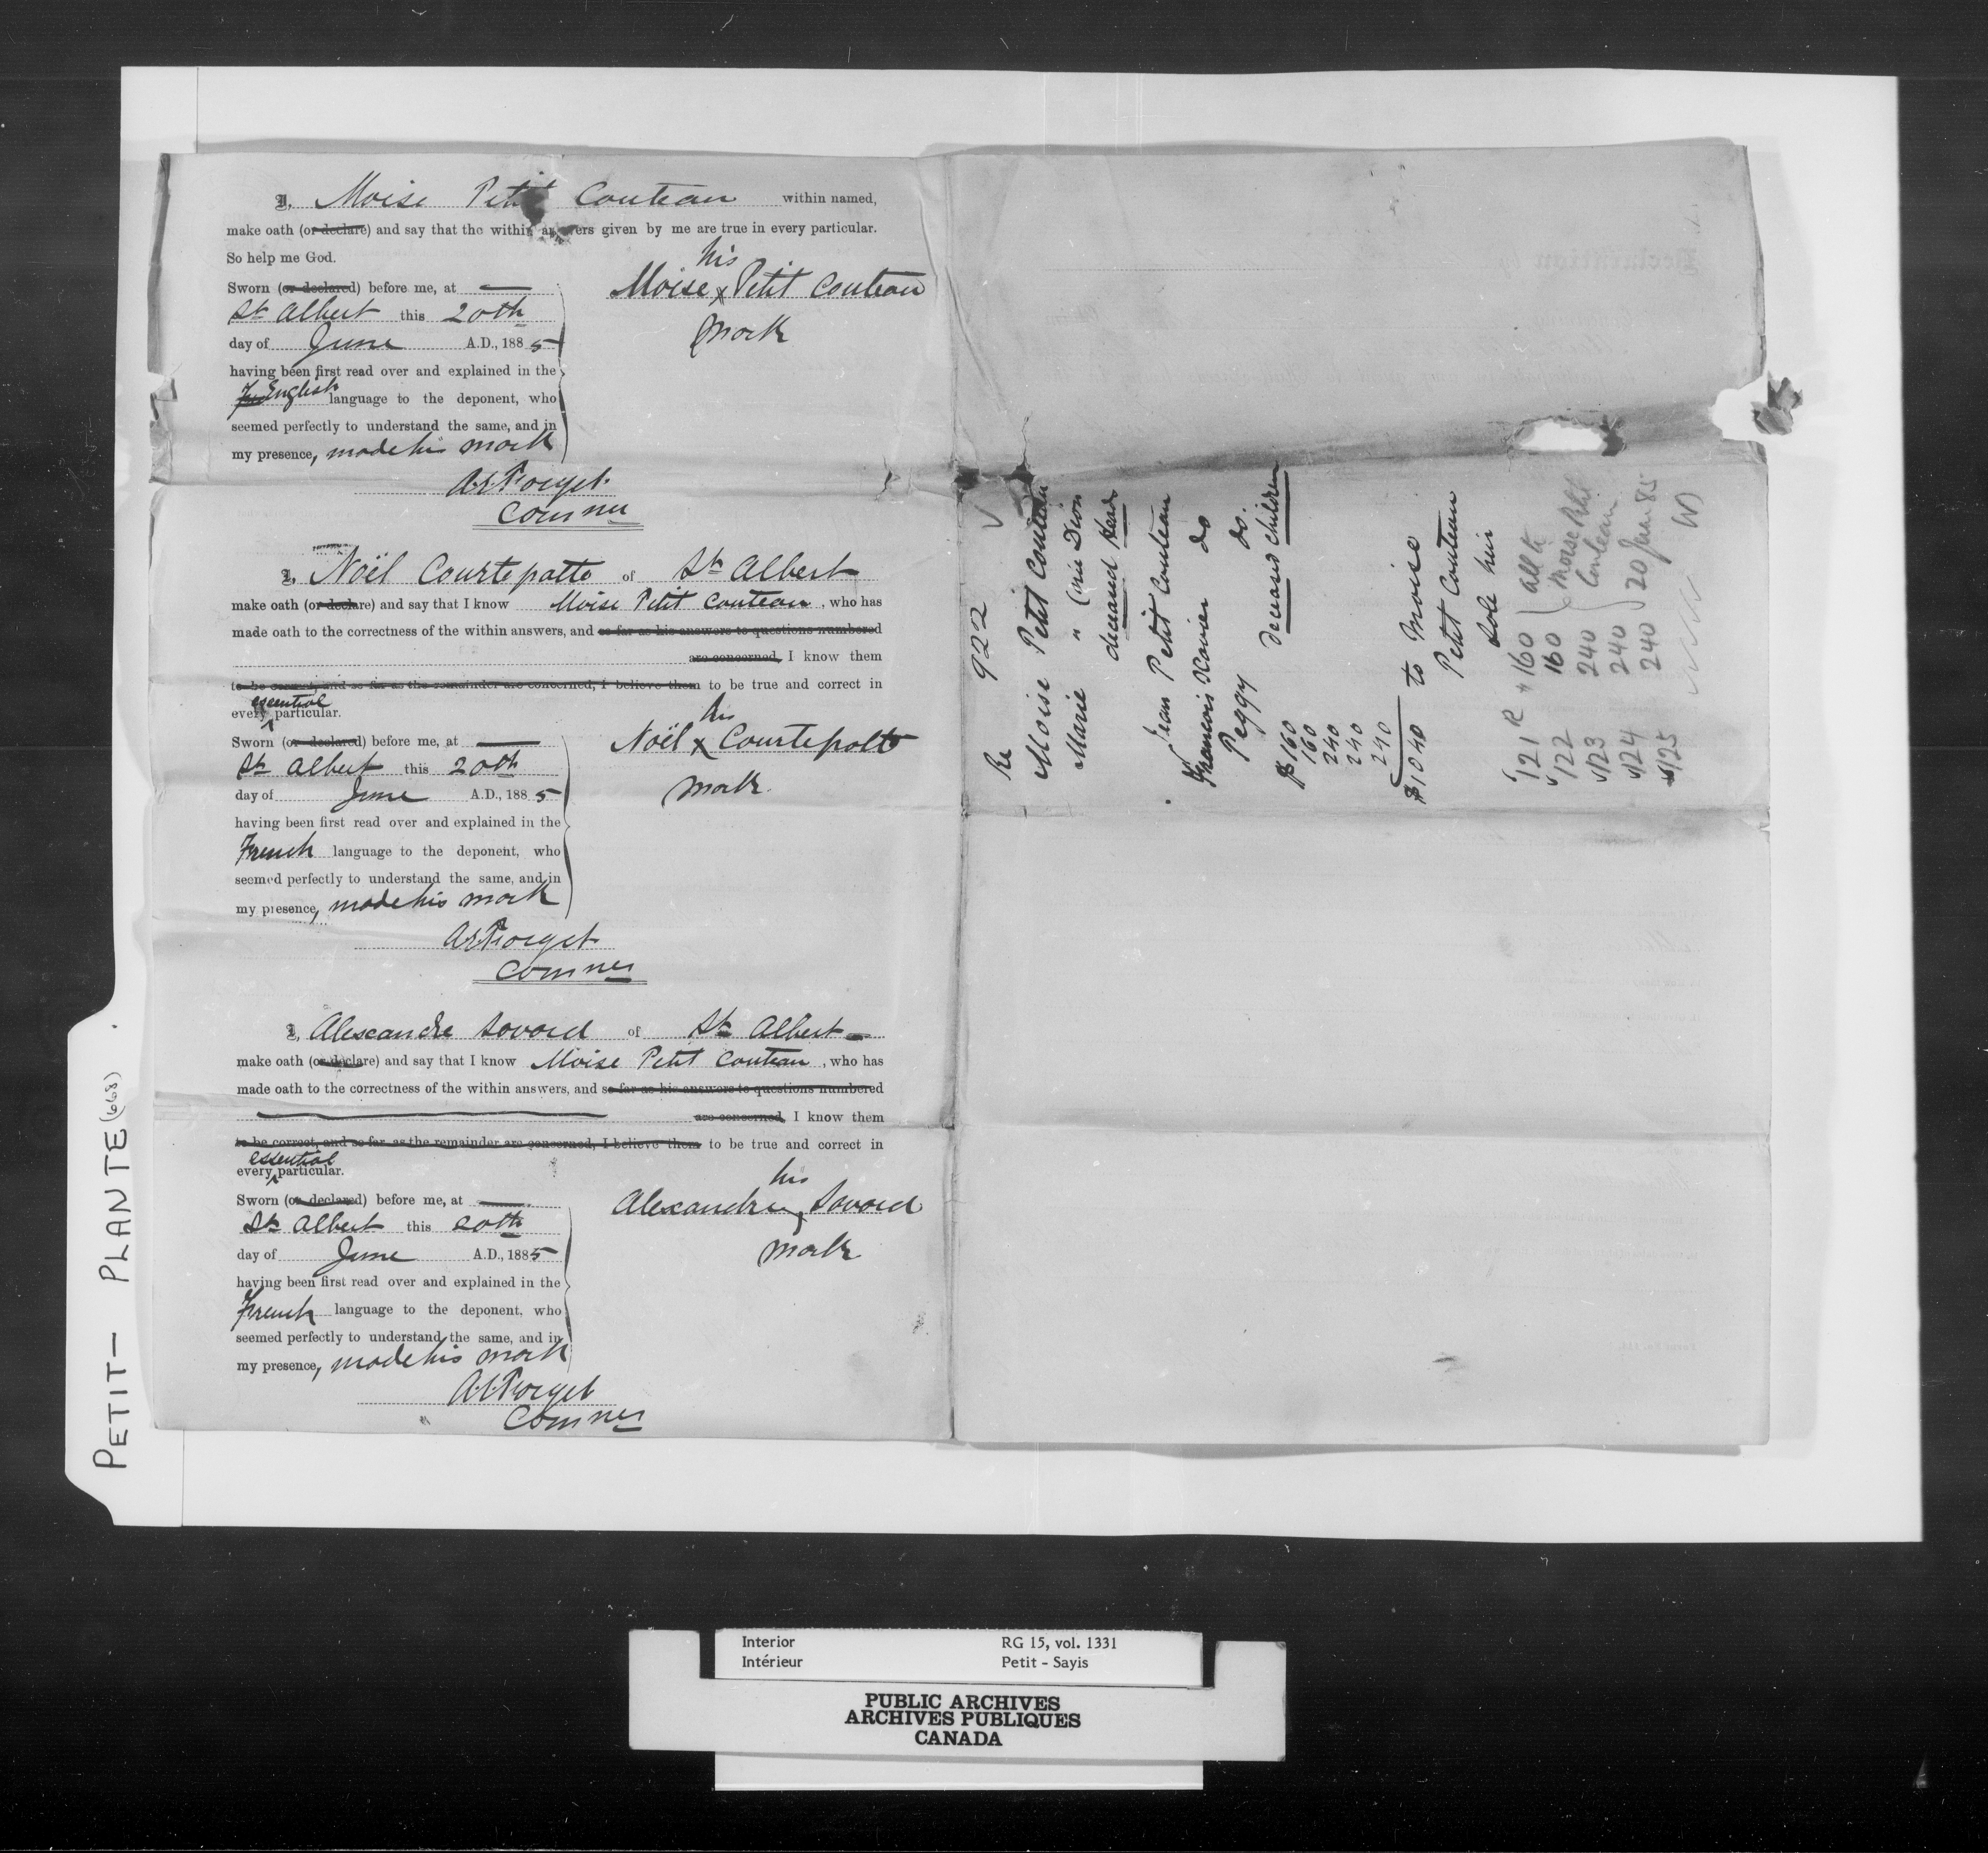 I, Moise Petit Couteau within named,
make oath (or declare) and say that the within answers given by me are true in every particular.
So help me God.
Sworn (or declared) before me, at —
St Albert this 20th
day of June A.D., 1885
having been first read over and explained in the
English language to the deponent, who
seemed perfectly to understand the same, and in
my presence, made his mark
his
Moise x Petit Couteau
mark
A.E. Forget
Commer
I, Noël Courtepatte of St Albert
make oath (or declare) and say that I know Moise Petit Couteau, who has
made oath to the correctness of the within answers, and so far as his answers to questions numbered
are concerned, I know them
to be correct, and so far as the remainder are concerned, I believe them to be true and correct in
essential
every ^ particular.
Sworn (or declared) before me, at —
St Albert this 20th
day of June A.D., 1885
having been first read over and explained in the
French language to the deponent, who
seemed perfectly to understand the same, and in
my presence, made his mark
his
Noël x Courtepatte
mark
A.E. Forget
Commer
I, Alexandre Savard of St Albert —
make oath (or declare) and say that I know Moise Petit Couteau, who has
made oath to the correctness of the within answers, and so far as his answers to questions numbered
are concerned, I know them
to be correct, and so far as the remainder are concerned, I believe them to be true and correct in
essential
every ^ particular.
Sworn (or declared) before me, at —
St Albert this 20th
day of June A.D., 1885
having been first read over and explained in the
French language to the deponent, who
seemed perfectly to understand the same, and in
my presence, made his mark
his
Alexandre x Savard
mark
A.E. Forget
Commer
922
Re
Moise Petit Couteau
Marie " (née Dion
deceased Heads
Jean Petit Couteau
Francois Xavier do
Peggy do.
deceased children
$160
160
240
240
240
$1040 to Moise
Petit Couteau
Sole heir
121 R 160 all to
122 160 Moise Petit
123 240 Couteau
124 240
125 240 20 June 85
PETIT — PLANTE (668)
Interior RG 15, vol. 1331
Intérieur Petit - Sayis
PUBLIC ARCHIVES
ARCHIVES PUBLIQUES
CANADA